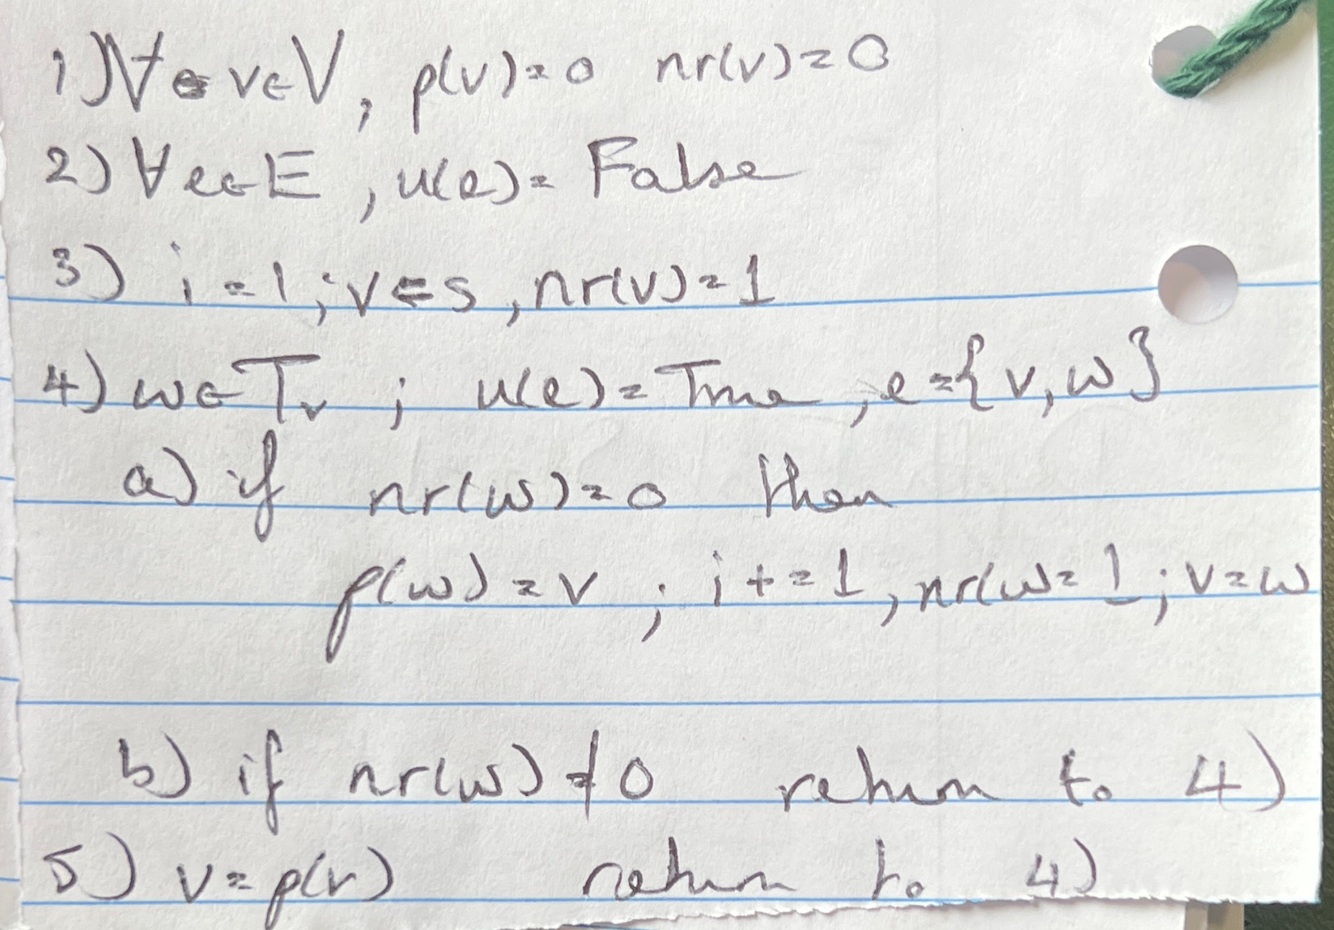 1) ∀ v∈V, p(v)=0 nr(v)=0
2) ∀e∈E, u(e)= False
3) i=1; v=s, nr(v)=1
4) w∈Tv; u(e)=True, e={v,w}
a) if nr(w)=0 then
p(w)=v; i+=1, nr(w=1; v=w
b) if nr(w)≠0 return to 4)
5) v=p(v) return to 4)